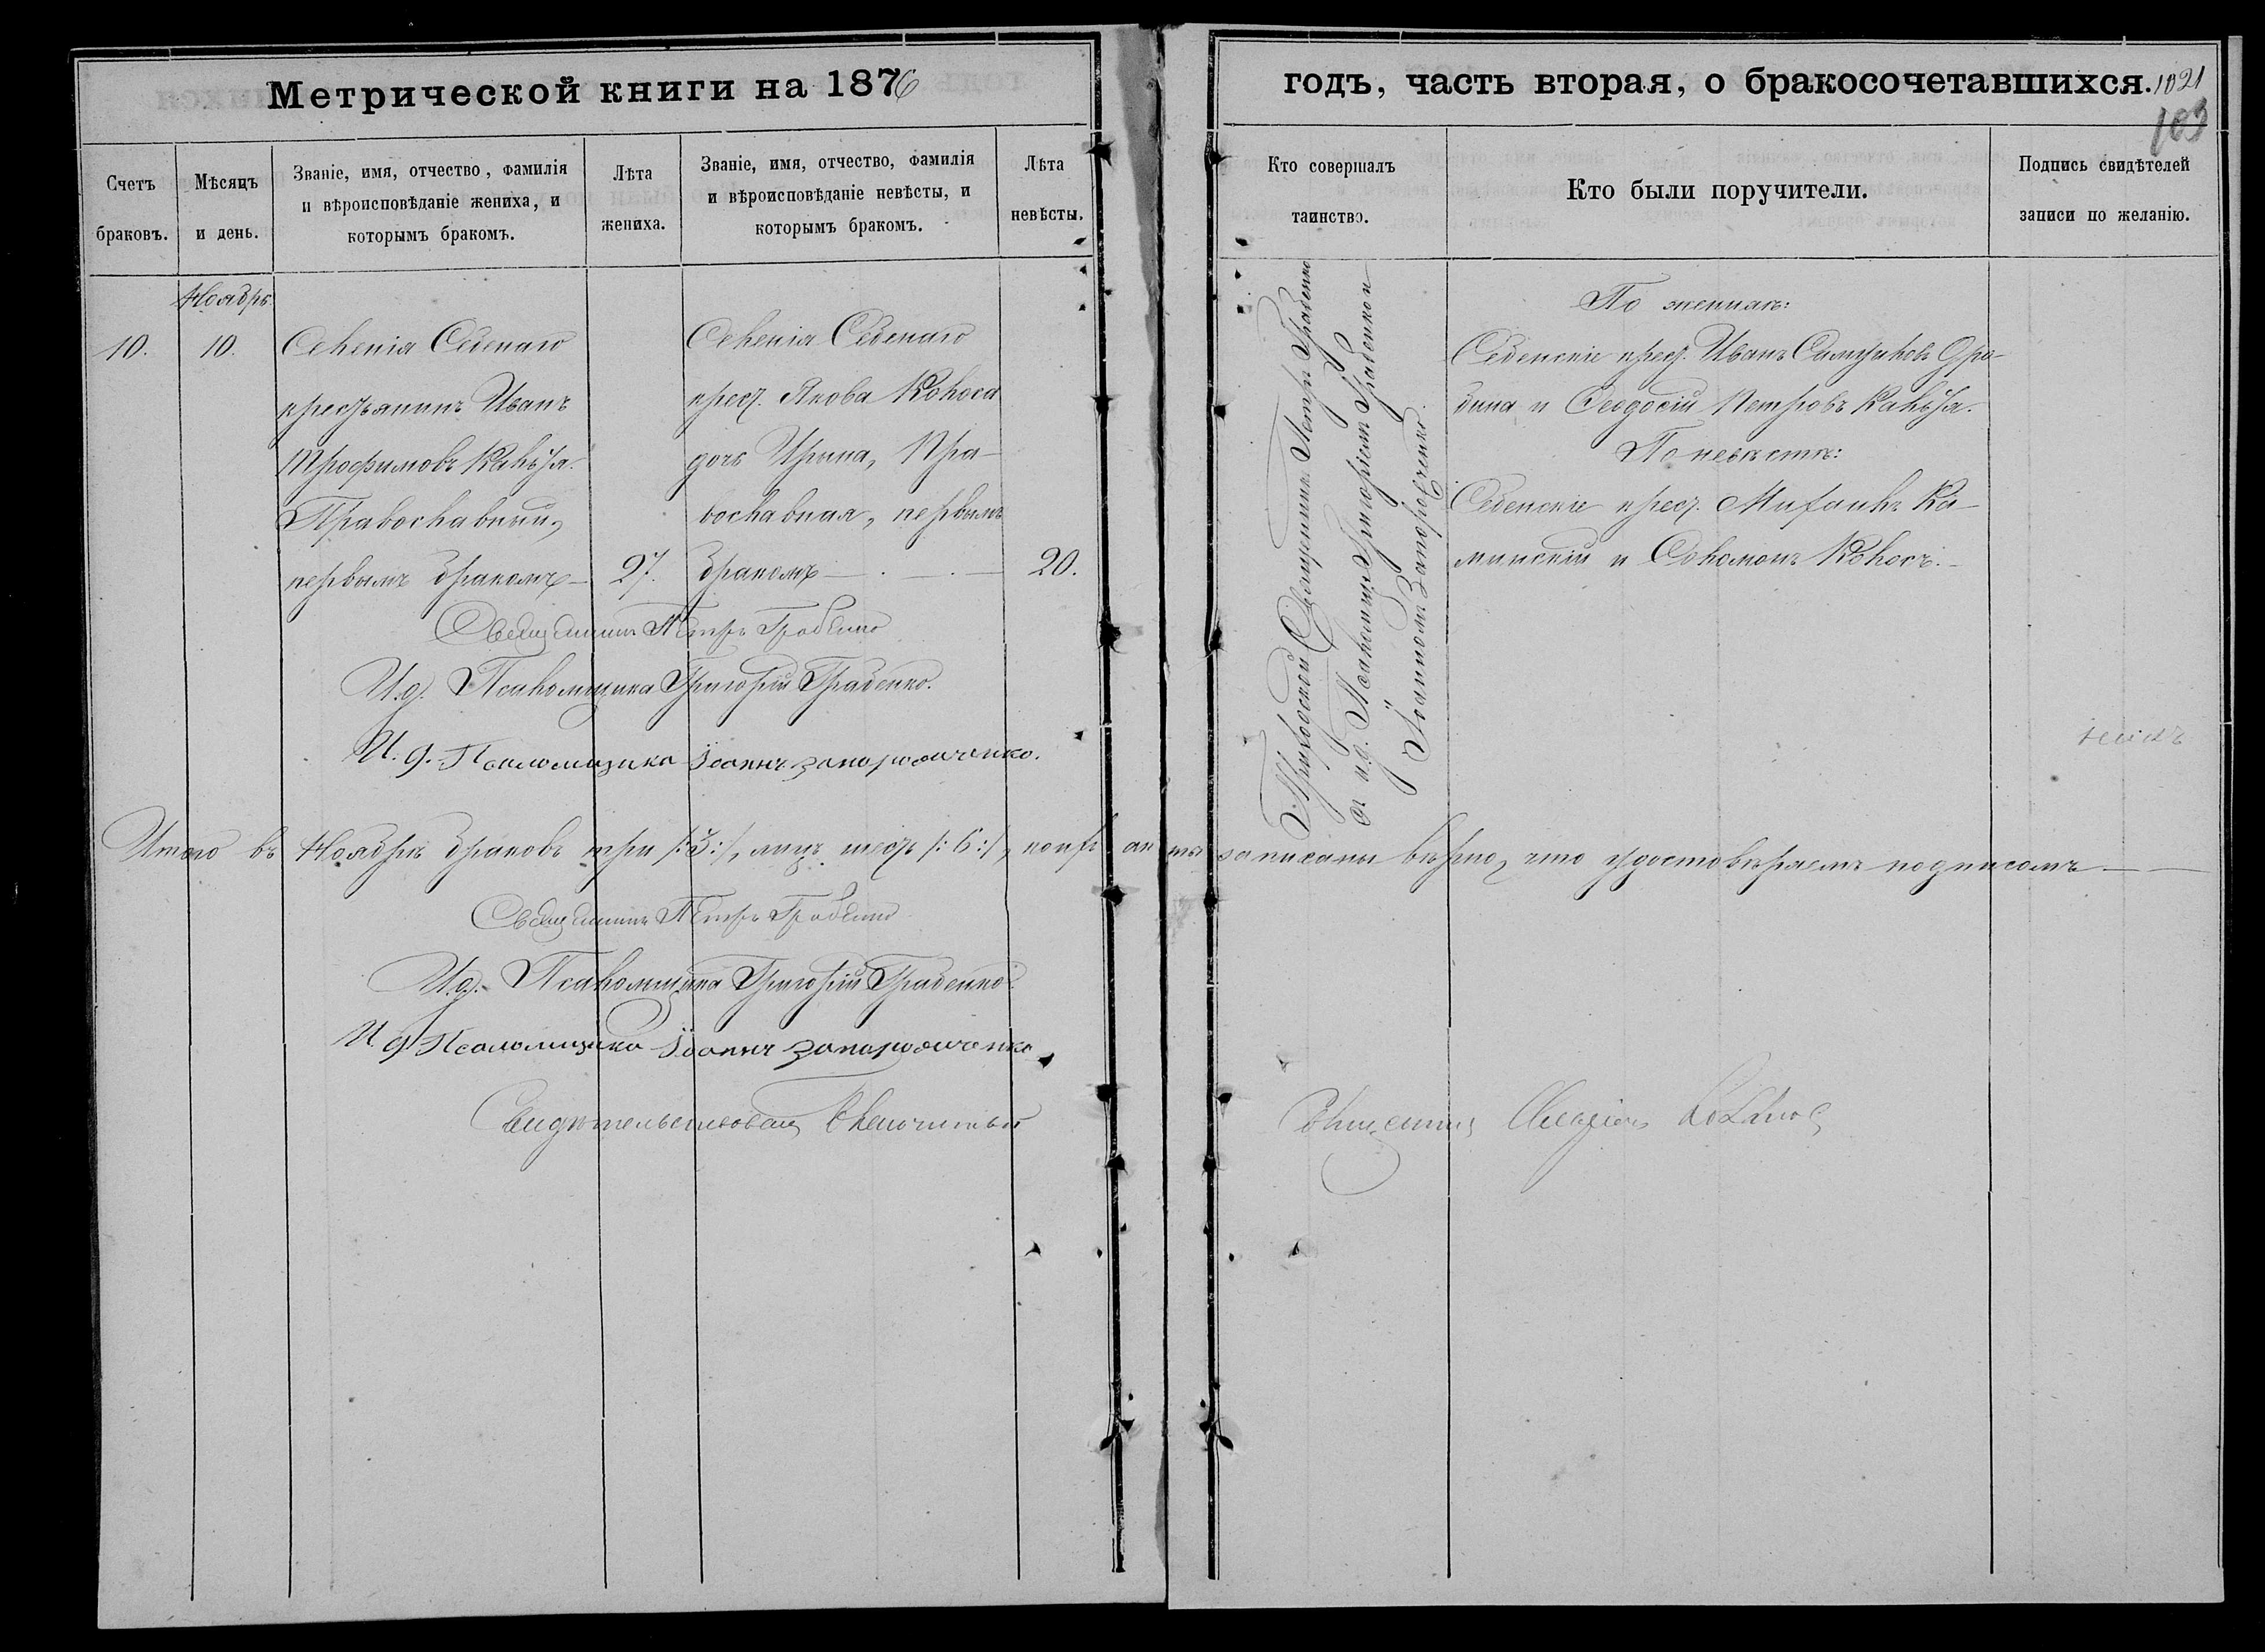 Метрической книги на 1876
годъ, часть вторая, о бракосочетавшихся. 1021
103
Счетъ браковъ.
Мѣсяцъ и день.
Званіе, имя, отчество, фамилія
и вѣроисповѣданіе жениха, и
которымъ бракомъ.
Лѣта
жениха.
Званіе, имя, отчество, фамилія
и вѣроисповѣданіе невѣсты, и
которымъ бракомъ.
Лѣта
невѣсты.
Кто совершалъ
таинство.
Кто были поручители.
Подпись свидѣтелей
записи по желанію.
Ноябрь
10.
10.
Селенія Седенаго
крестьянинъ Иванъ
Трофимовъ
Православный,
первымъ бракомъ
27.
Селенія Седенаго
крест. Якова Колоса
дочь Ирина, Пра-
вославная, первымъ
бракомъ
20.
Приходскій Священникъ Петръ Грабенко
съ и.д. Псаломщ. Григоріем Грабенком
Іоанном Запорожченко.
По женихѣ:
Седенскіе крест. Иванъ
и Ѳеодосій Петровъ
По невѣстѣ:
Седенскіе крест. Михаилъ Ка-
минскій и Соломонъ Колосъ.
Священникъ Петръ Грабенко
И.д. Псаломщика Григорій Грабенко.
И.д. Псаломщика Іоаннъ Запорожченко.
Итого въ Ноябрѣ браковъ три /:3:/, лицъ шесть /:6:/, коихъ акты записаны вѣрно, что удостовѣряемъ подписомъ
Священникъ Петръ Грабенко
И.д. Псаломщика Григорій Грабенко.
И.д. Псаломщика Іоаннъ Запорожченко
Свидѣтельствовалъ Благочинный
Священникъ